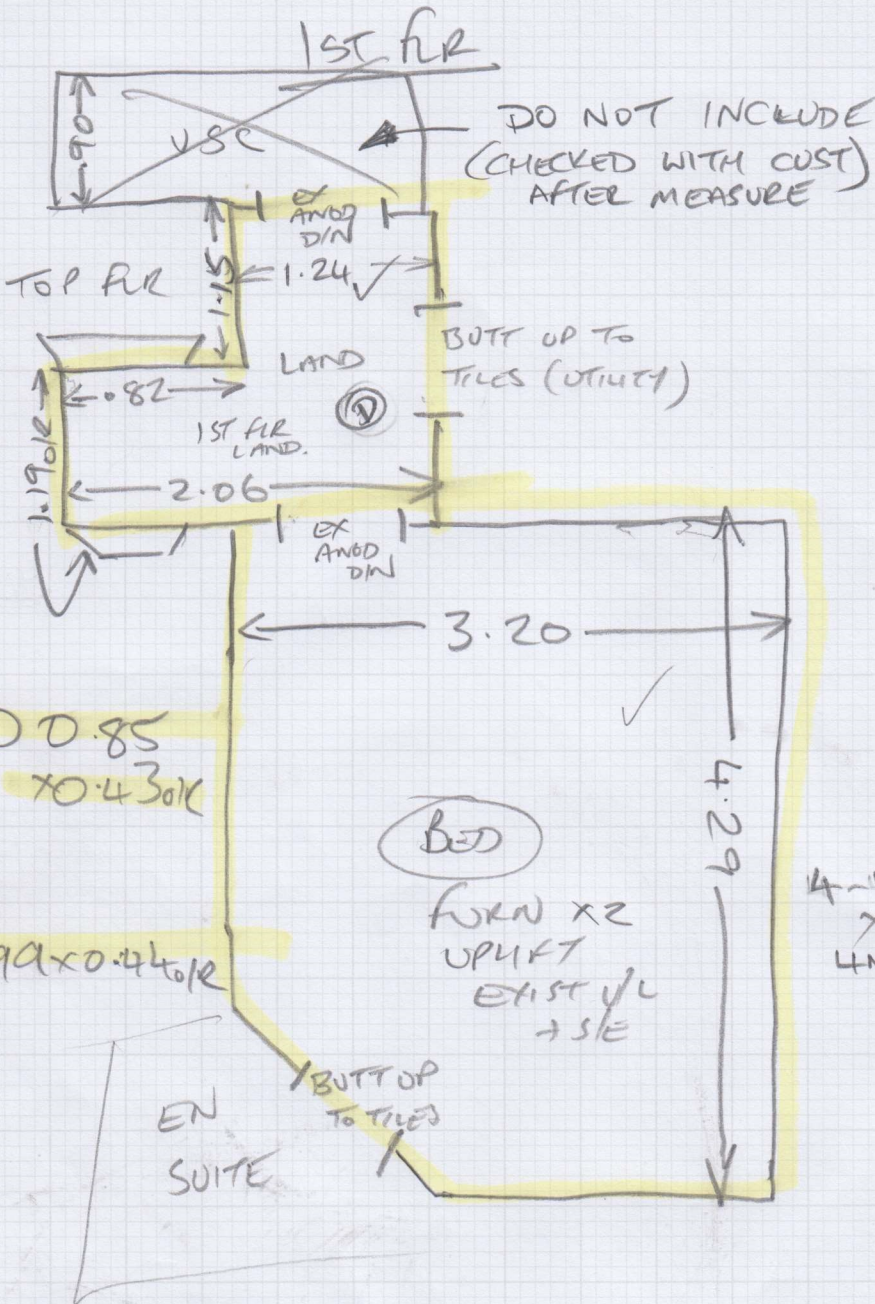 1ST FLR
.90
DO NOT INCLUDE
(CHECKED WITH CUST)
AFTER MEASURE
EX
ANOD
D/N
1.15
1.24 ✓
TOP FLR
BUTT UP TO
TILES (UTILITY)
LAND
.82
D
1ST FLR
LAND.
1.19 O/R
2.06
EX
ANOD
D/N
3.20
✓
0.85
x0.43 O/R
4.29
BED
FURN x2
UPLIFT
EXIST U/L
+ S/E
x0.44 O/R
BUTT UP
TO TILES
EN
SUITE